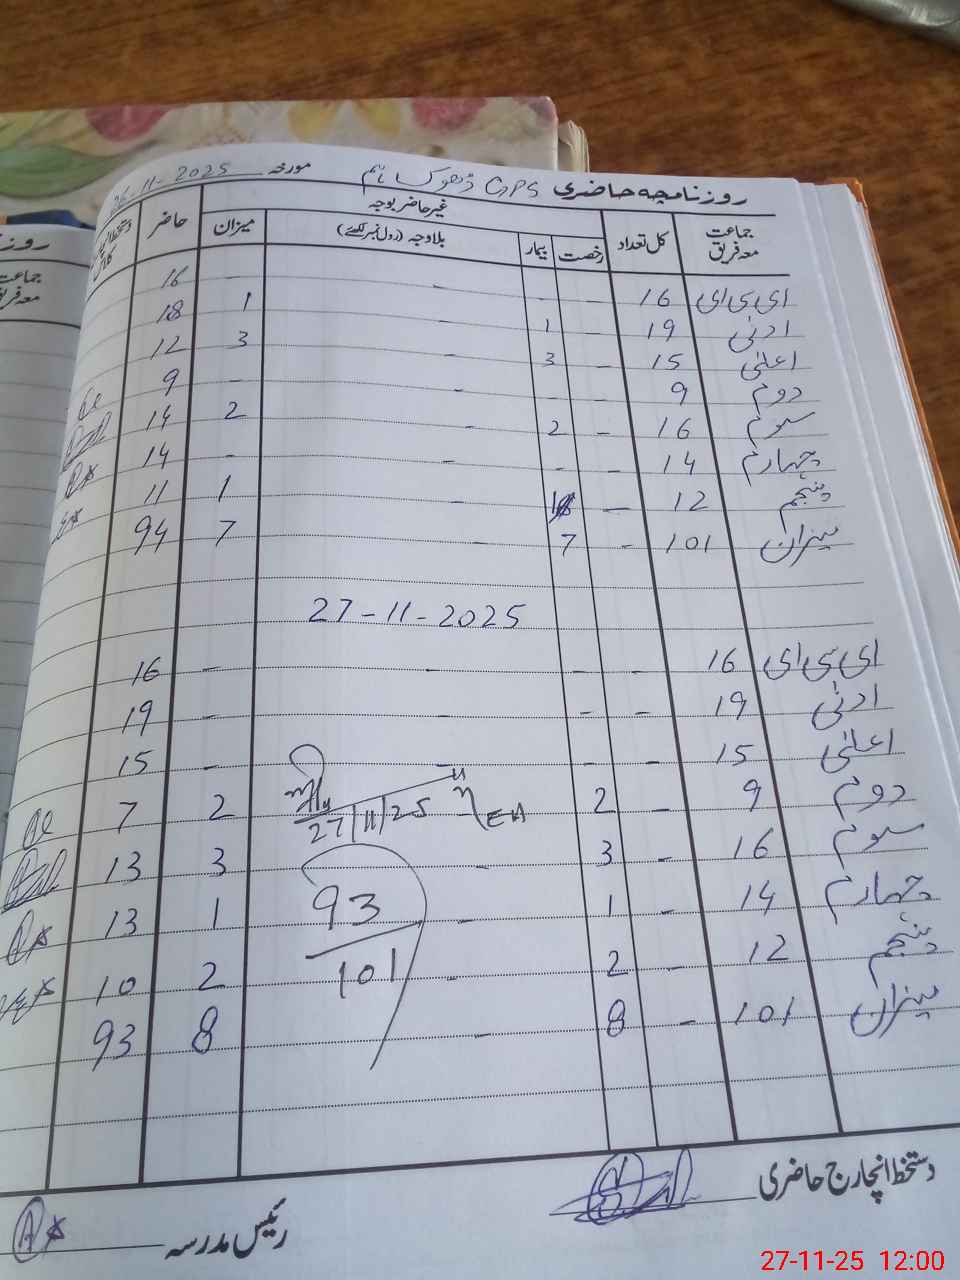 روزنامچہ حاضری GPS ڈھوک ہاشم مورخہ 26-11-2025
جماعت معہ فریق کل تعداد غیر حاضر بوجہ میزان حاضر
رخصت بیمار بلاوجہ (رول نمبر لکھئے)
ای سی ای 16 - - - - 16
ادنٰی 19 - 1 - 1 18
اعلٰی 15 - 3 - 3 12
دوم 9 - - - - 9
سوم 16 - 2 - 2 14
چہارم 14 - - - - 14
پنجم 12 - 1 - 1 11
میزان 101 - 7 - 7 94
27-11-2025
ای سی ای 16 - - - - 16
ادنٰی 19 - - - - 19
اعلٰی 15 - - - - 15
دوم 9 - 2 - 2 7
27/11/25
سوم 16 - 3 - 3 13
چہارم 14 - 1 - 1 13
93
101
پنجم 12 - 2 - 2 10
میزان 101 - 8 - 8 93
دستخط انچارج حاضری
رئیس مدرسہ
روزنا
جماعت
معہ فریق
27-11-25 12:00